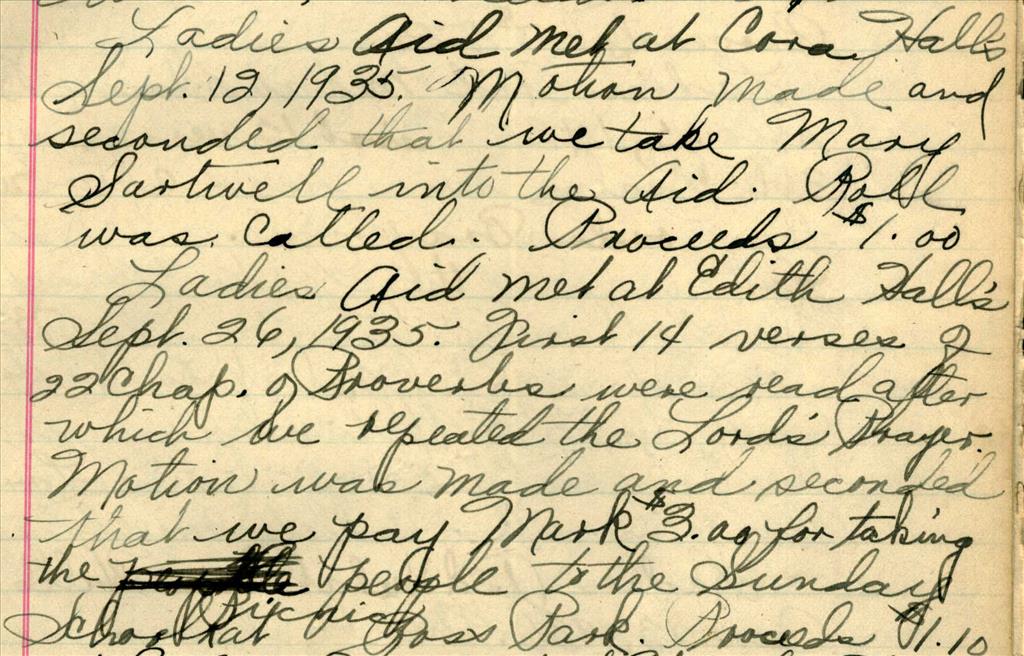 Ladies Aid met at Cora Hall's
Sept. 12, 1935. Motion made and
seconded that we take Mary
Sartwell into the Aid. Roll
was called. Proceeds $1.00
Ladies Aid met at Edith Hall's
Sept. 26, 1935. First 14 verses of
22 Chap. of Proverbs were read after
which we repeated the Lord's Prayer.
Motion was made and seconded
that we pay Mark $3.00 for taking
the people to the Sunday
Picnic
School at Ross Park. Proceeds $1.10